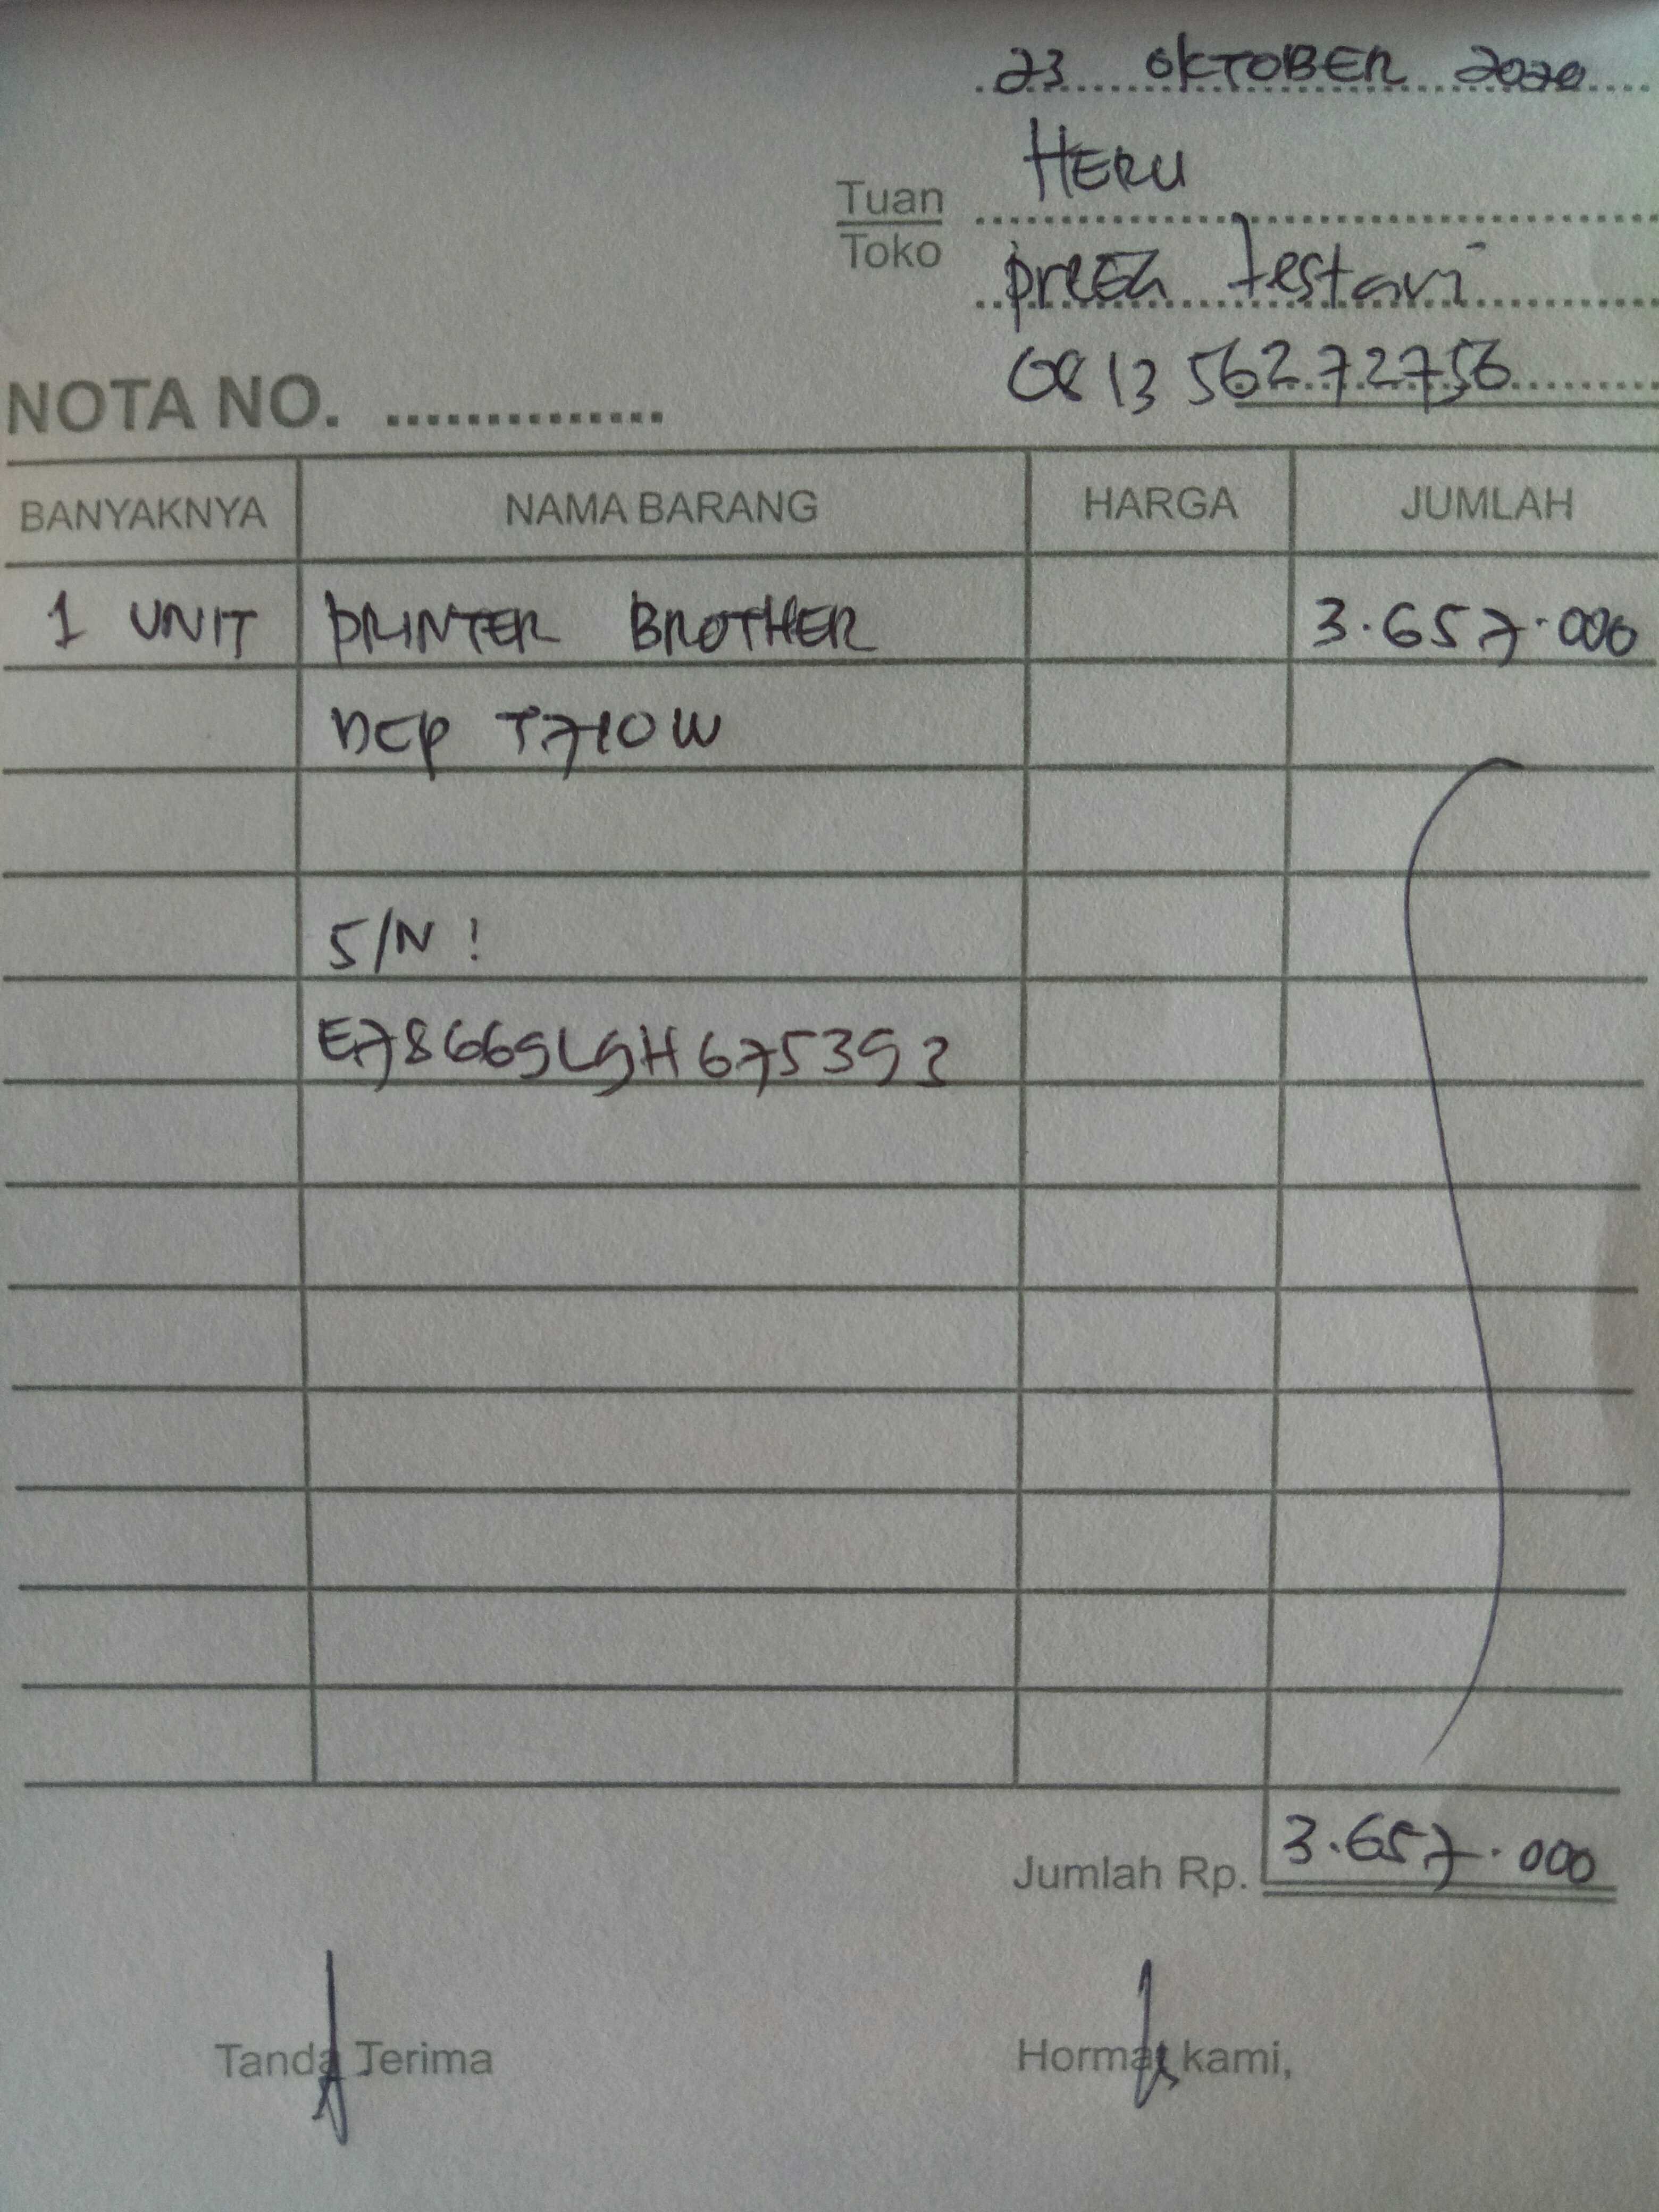 23 OKTOBER 2020
HERU
Tuan
Toko
lestari
0813 56272756
NOTA NO. ..............
BANYAKNYA NAMA BARANG HARGA JUMLAH
1 UNIT PRINTER BROTHER 3.657.000
DCP T710W
S/N :
E78669L9H675393
Jumlah Rp. 3.657.000
Tanda Terima Hormat kami,